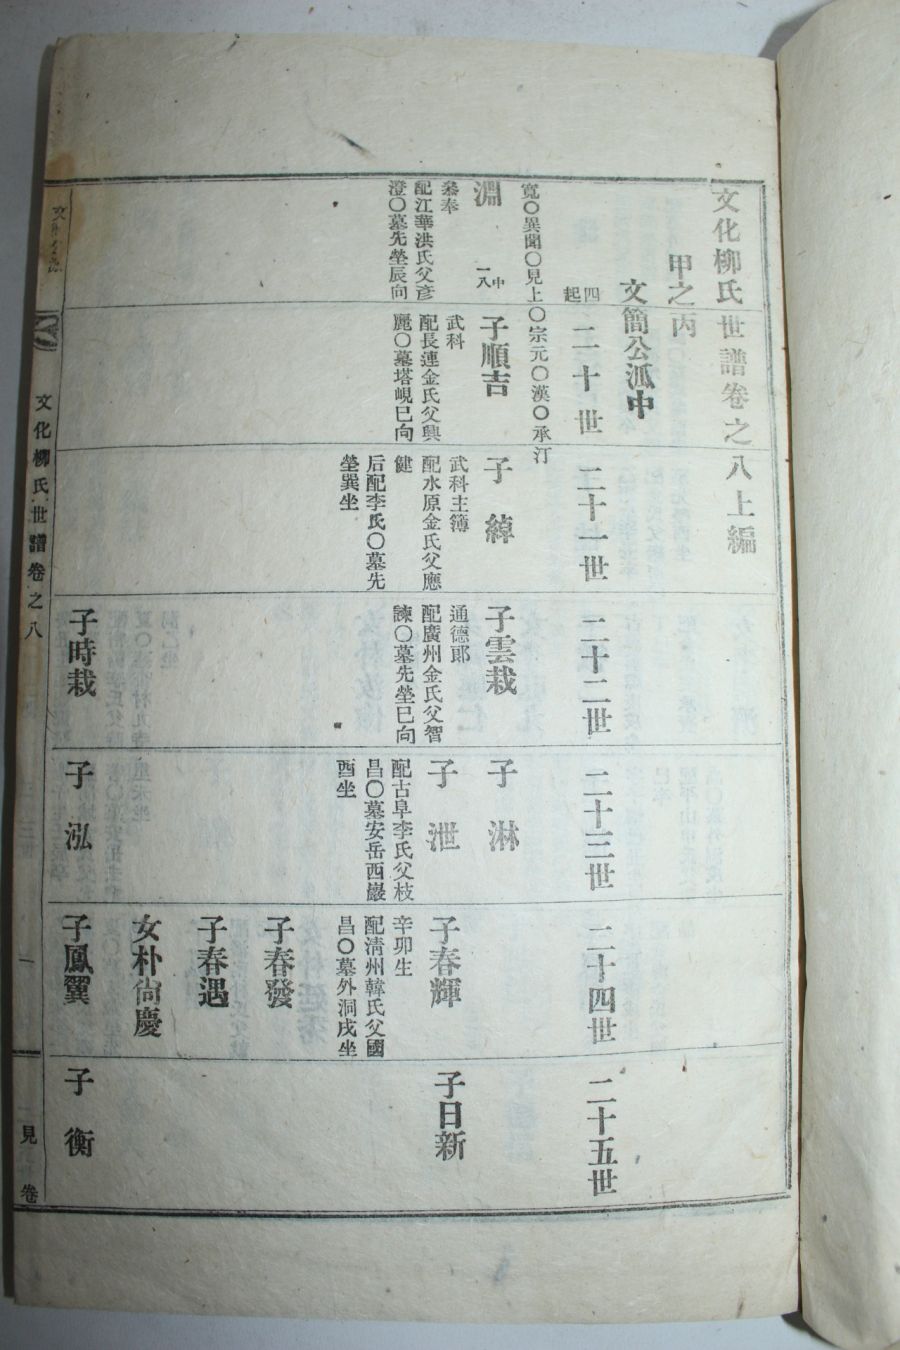 文化柳氏世譜卷之八上編
甲之丙
文簡公泒中
四
起
二十世
二十一世
二十二世
二十三世
二十四世
二十五世
寬〇異聞〇見上〇宗元〇漢〇承汀
淵
中
一八
叅奉
配江華洪氏父彦
澄〇墓先塋辰向
子順吉
武科
配長連金氏父興
麗〇墓塔峴巳向
子綽
武科主簿
配水原金氏父應
健
后配李氏〇墓先
塋巽坐
子雲栽
通德郞
配廣州金氏父智
諫〇墓先塋巳向
子時栽
子淋
子泄
配古阜李氏父枝
昌〇墓安岳西巖
酉坐
子泓
子春輝
辛卯生
配淸州韓氏父國
昌〇墓外洞戌坐
子春發
子春遇
女朴尙慶
子鳳翼
子日新
子衡
文化柳氏世譜卷之八
一
見
卷